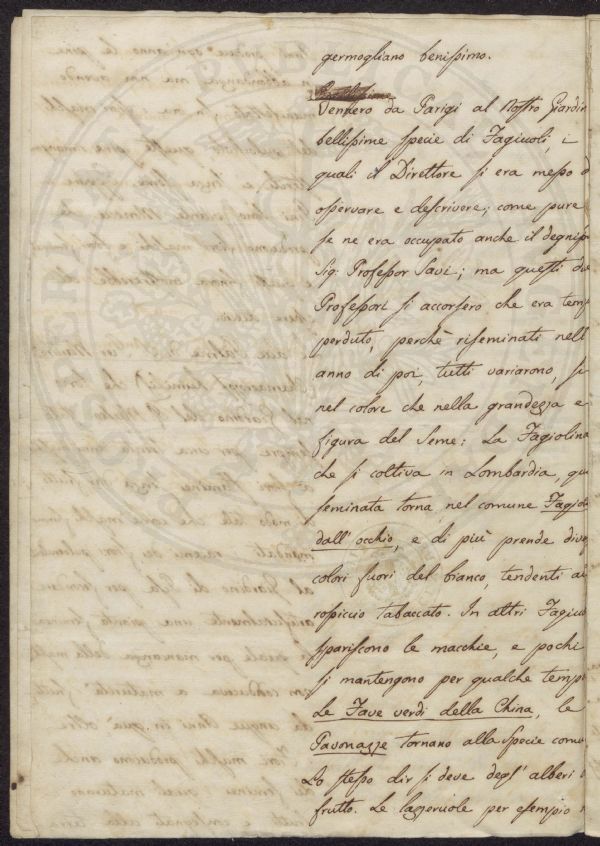 germogliano benissimo.
Vennero da Parigi al Nostro Giardin
bellissime specie di Fagiuoli, i
quali il Direttore si era messo d
osservare e descrivere; come pure
se ne era occupato anche il degnis
Sig: Professor Savi; ma questi du
Professori si accorsero che era temp
perduto, perchè riseminati nell
anno di poi, tutti variarono, si
nel colore che nella grandezza e
figura del Seme: La Fagiolina
che si coltiva in Lombardia, qu
seminata torna nel comune Fagiol
dall' occhio, e di più prende dive
colori fuori del bianco, tendenti al
rossiccio tabaccato. In altri Fagiuo
spariscono le macchie, e pochi
si mantengono per qualche temp
Le Fave verdi della China, le
Pavonazze tornano alla specie comu
Lo stesso dir si deve degl' alberi
frutto. Le lazzeruole per esempio